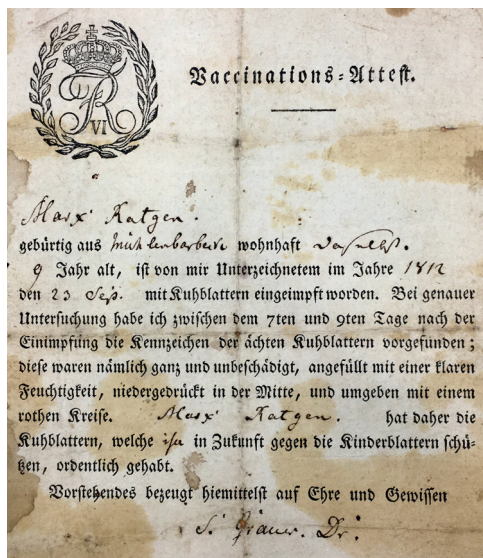 FR
VI
Vaccinations-Attest.
Marx Ratgen.
gebürtig aus Mühlenbarbeck wohnhaft daselbst.
9 Jahr alt, ist von mir Unterzeichnetem im Jahre 1812
den 23 Sept. mit Kuhblattern eingeimpft worden. Bei genauer
Untersuchung habe ich zwischen dem 7ten und 9ten Tage nach der
Einimpfung die Kennzeichen der ächten Kuhblattern vorgefunden;
diese waren nämlich ganz und unbeschädigt, angefüllt mit einer klaren
Feuchtigkeit, niedergedrückt in der Mitte, und umgeben mit einem
rothen Kreise. Marx Ratgen. hat daher die
Kuhblattern, welche ihn in Zukunft gegen die Kinderblattern schü-
tzen, ordentlich gehabt.
Vorstehendes bezeugt hiemittelst auf Ehre und Gewissen
Dr.